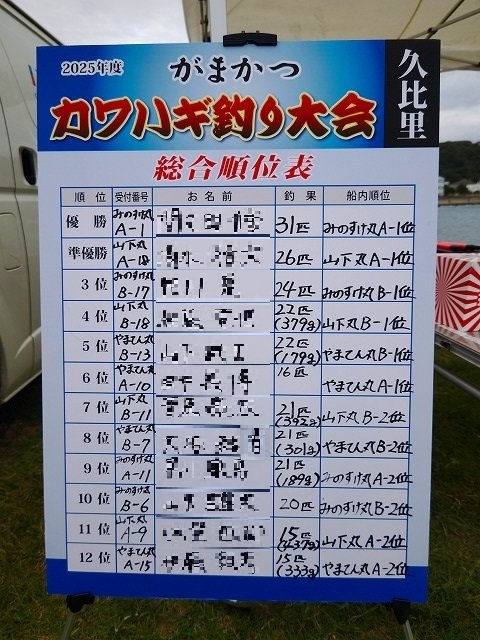 2025年度
がまかつ
久比里
カワハギ釣り大会
総合順位表
順位 受付番号 お名前 釣果 船内順位
優勝 みのすけ丸 A-1 31匹 みのすけ丸A-1位
準優勝 山下丸 A-18 26匹 山下丸A-1位
3位 みのすけ丸 B-17 24匹 みのすけ丸B-1位
4位 山下丸 B-18 22匹 (379g) 山下丸B-1位
5位 やまてん丸 B-13 22匹 (179g) やまてん丸B-1位
6位 やまてん丸 A-10 16匹 やまてん丸A-1位
7位 山下丸 B-11 21匹 (392g) 山下丸B-2位
8位 やまてん丸 B-7 21匹 (301g) やまてん丸B-2位
9位 みのすけ丸 A-11 21匹 (189g) みのすけ丸A-2位
10位 みのすけ丸 B-6 20匹 みのすけ丸B-2位
11位 山下丸 A-9 15匹 (437g) 山下丸A-2位
12位 やまてん丸 A-15 15匹 (333g) やまてん丸A-2位